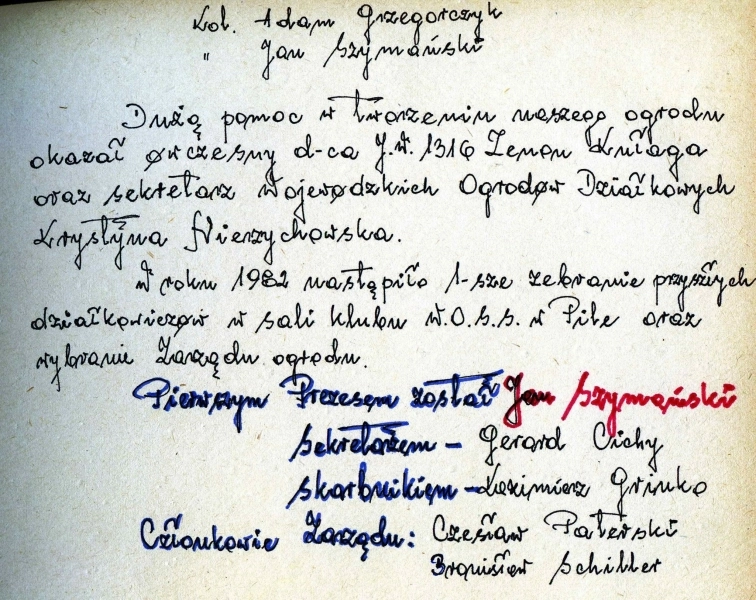 Kol. Adam Grzegorczyk
" Jan Szymański
Dużą pomoc w tworzeniu naszego ogrodu
okazał ówczesny d-ca J.W. 1316 Zenon Kułaga
oraz sekretarz Wojewódzkich Ogrodów Działkowych
Krystyna Nierzychowska.
W roku 1982 nastąpiło 1-sze zebranie przyszłych
działkowiczów w sali klubu W.O.S.S. w Pile oraz
wybranie Zarządu ogrodu.
Pierwszym Prezesem został Jan Szymański
sekretarzem – Gerard Cichy
skarbnikiem – Kazimierz Grinko
Członkowie Zarządu: Czesław Paterski
Bronisław Schiller